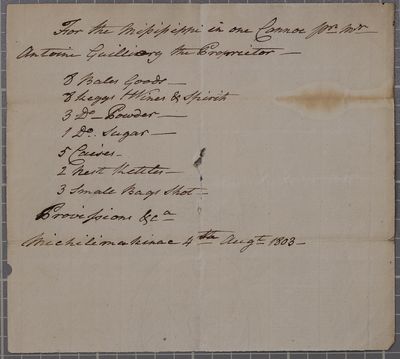 For the Missisippi in one Cannoe Pr. Mr
Antoine Guilliory the Proprietor —
8 Bales Goods —
8 keggs Wines & Spirit
3 Do — Powder —
1 Do. Sugar —
5 Caises —
2 Nest Kettles —
3 Small Bags Shot —
Provissions &c a
Michilimakinac 4th Augt 1803 —